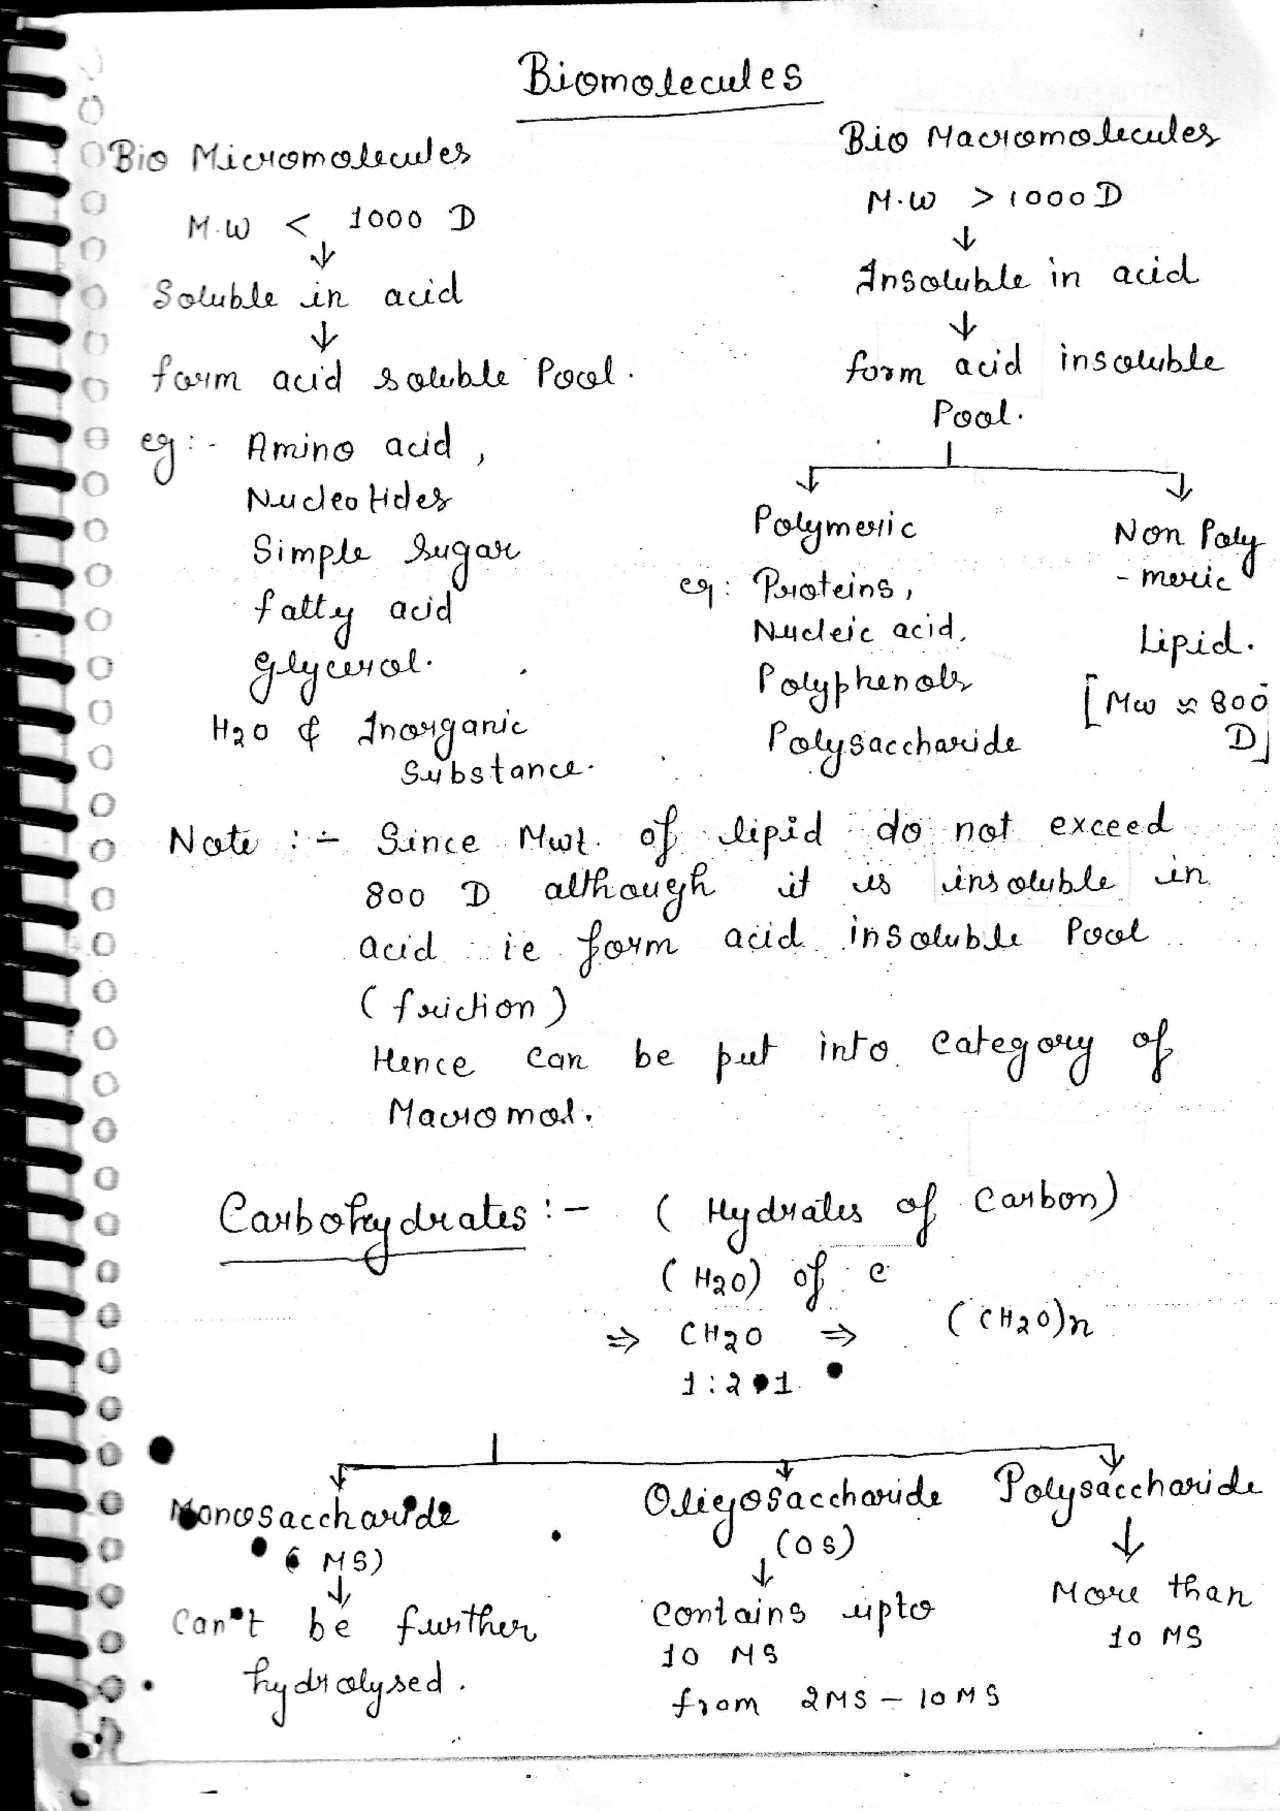 Biomolecules
Bio Micromolecules
M.W < 1000 D
↓
Soluble in acid
↓
form acid soluble Pool.
eg:- Amino acid,
Nucleotides
Simple Sugar
fatty acid
Glycerol.
H2O & Inorganic
Substance.
Bio Macromolecules
M.W > 1000 D
↓
Insoluble in acid
↓
form acid insoluble
Pool.
Polymeric
eg: Proteins,
Nucleic acid,
Polyphenols
Polysaccharide
Non Poly
-meric
Lipid.
[Mw ≈ 800
D]
Note :- Since Mwt. of lipid do not exceed
800 D although it is insoluble in
acid ie form acid insoluble Pool
(friction)
Hence can be put into category of
Macromol.
Carbohydrates :- (Hydrates of Carbon)
(H2O) of C
⇒ CH2O ⇒ (CH2O)n
1:2:1
Monosaccharide
(MS)
↓
Can't be further
hydrolysed.
Oligosaccharide
(OS)
↓
Contains upto
10 MS
from 2MS - 10MS
Polysaccharide
↓
More than
10 MS